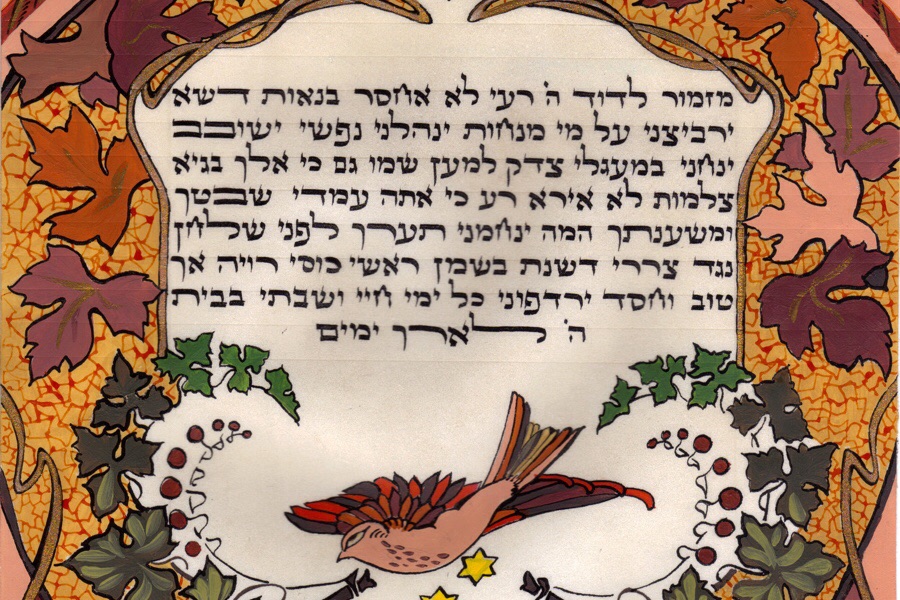 מזמור לדוד ה' רעי לא אחסר בנאות דשא
ירביצני על מי מנחות ינהלני נפשי ישובב
ינחני במעגלי צדק למען שמו גם כי אלך בגיא
צלמות לא אירא רע כי אתה עמדי שבטך
ומשענתך המה ינחמני תערך לפני שלחן
נגד צררי דשנת בשמן ראשי כוסי רויה אך
טוב וחסד ירדפוני כל ימי חיי ושבתי בבית
ה' לארך ימים